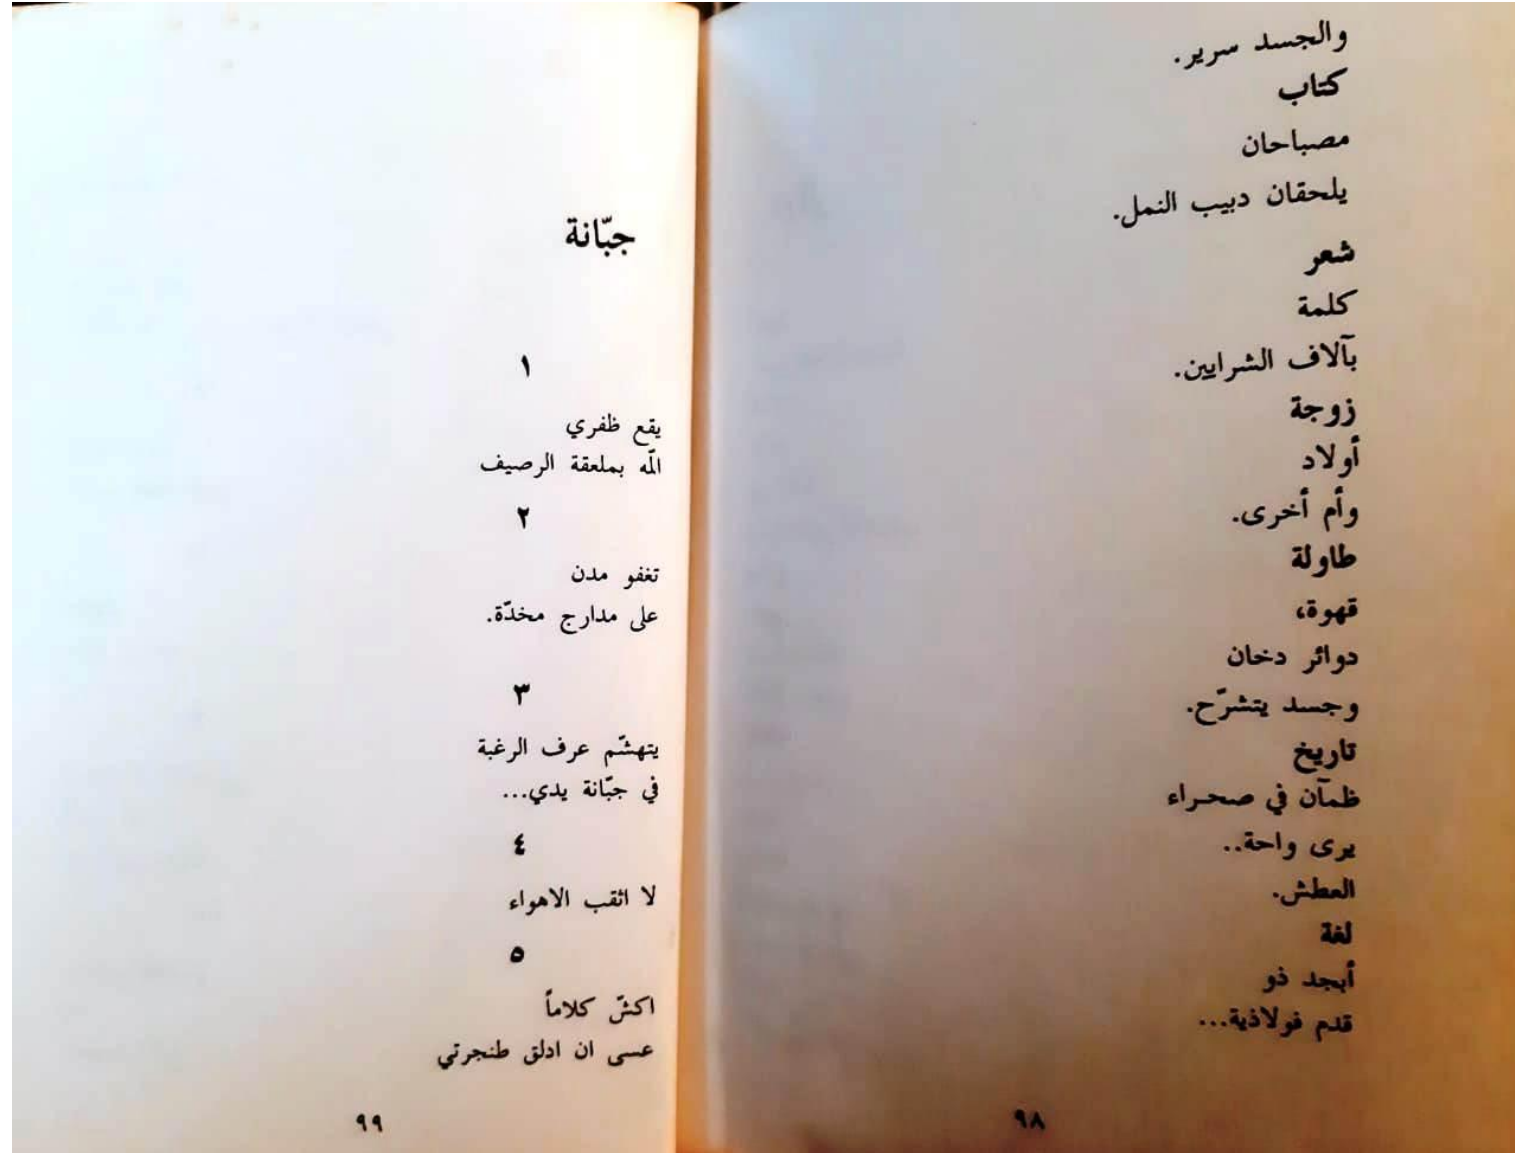 والجسد سرير.
كتاب
مصباحان
يلحقان دبيب النمل.
شعر
كلمة
بآلاف الشرايين.
زوجة
أولاد
وأم أخرى.
طاولة
قهوة،
دوائر دخان
وجسد يتشرّح.
تاريخ
ظمآن في صحراء
يرى واحة..
العطش.
لغة
أبجد ذو
قدم فولاذية...
٩٨
جبّانة
١
يقع ظفري
المّه بملعقة الرصيف
٢
تغفو مدن
على مدارج مخدّة.
٣
يتهشّم عرف الرغبة
في جبّانة يدي...
٤
لا اثقب الاهواء
٥
اكشّ كلاماً
عسى ان ادلق طنجرتي
٩٩